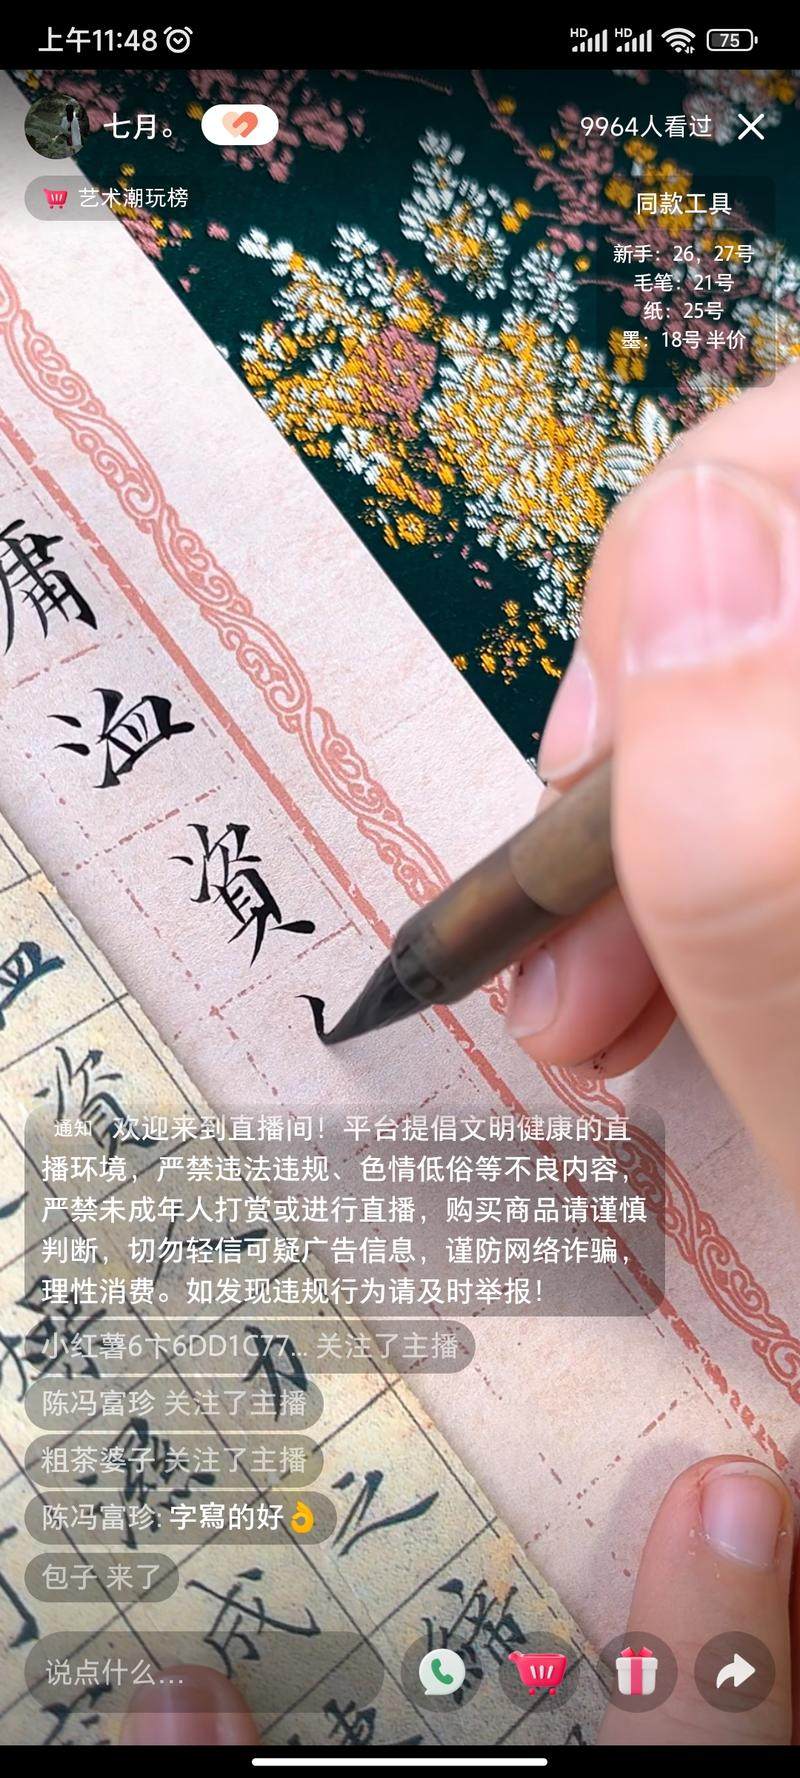 上午11:48
HD HD 75
七月。
9964人看过
艺术潮玩榜
同款工具
新手：26，27号
毛笔：21号
纸：25号
墨：18号 半价
庸
洫
資
資
通知 欢迎来到直播间！平台提倡文明健康的直
播环境，严禁违法违规、色情低俗等不良内容，
严禁未成年人打赏或进行直播，购买商品请谨慎
判断，切勿轻信可疑广告信息，谨防网络诈骗，
理性消费。如发现违规行为请及时举报！
小红薯6卞6DD1C77... 关注了主播
陈冯富珍 关注了主播
粗茶婆子 关注了主播
陈冯富珍: 字寫的好👌
包子 来了
成
说点什么...